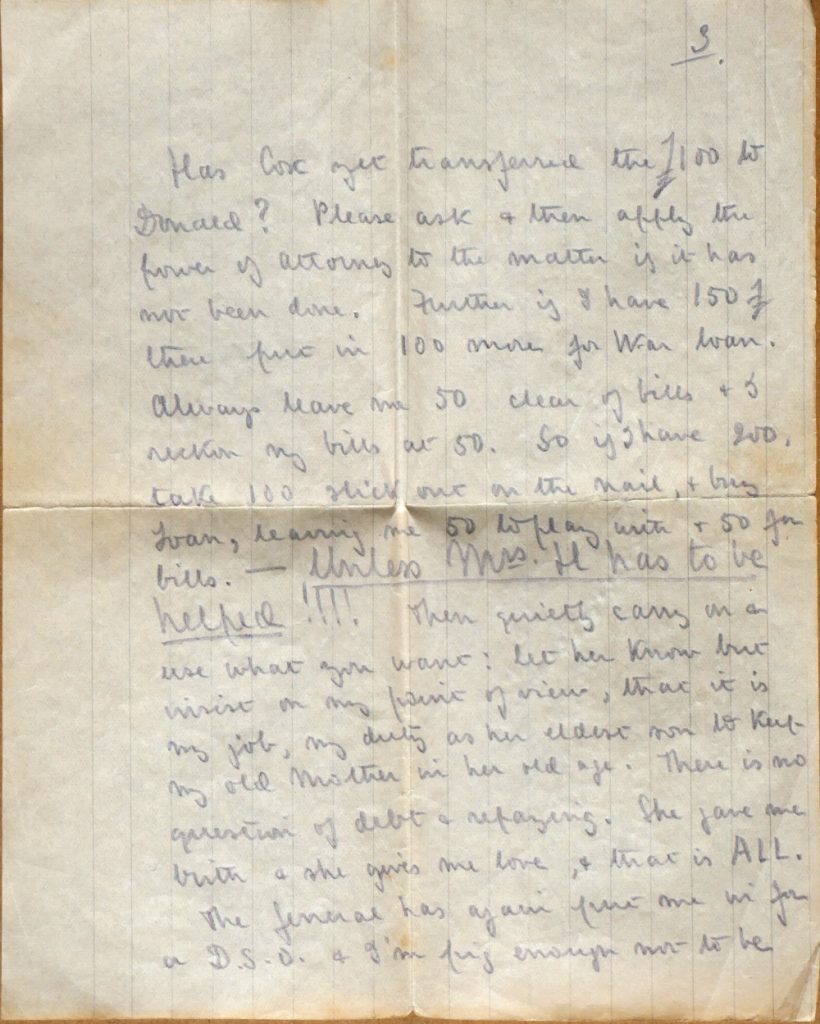 3.
Has Cox yet transferred the £100 to
Donald? Please ask & then apply the
power of attorney to the matter if it has
not been done. Further if I have 150 £
there put in 100 more for War Loan.
Always leave me 50 clear of bills & I
reckon my bills at 50. So if I have 200,
take 100 slick out on the nail, & buy
Loan, leaving me 50 to play with & 50 for
bills. — Unless Mrs. H has to be
helped!!!!! Then quietly carry on &
use what you want: let her know but
insist on my point of view, that it is
my job, my duty as her eldest son to keep
my old Mother in her old age. There is no
question of debt & repaying. She gave me
birth & she gives me love, & that is ALL.
The General has again put me in for
a D.S.O. & I'm pig enough not to be